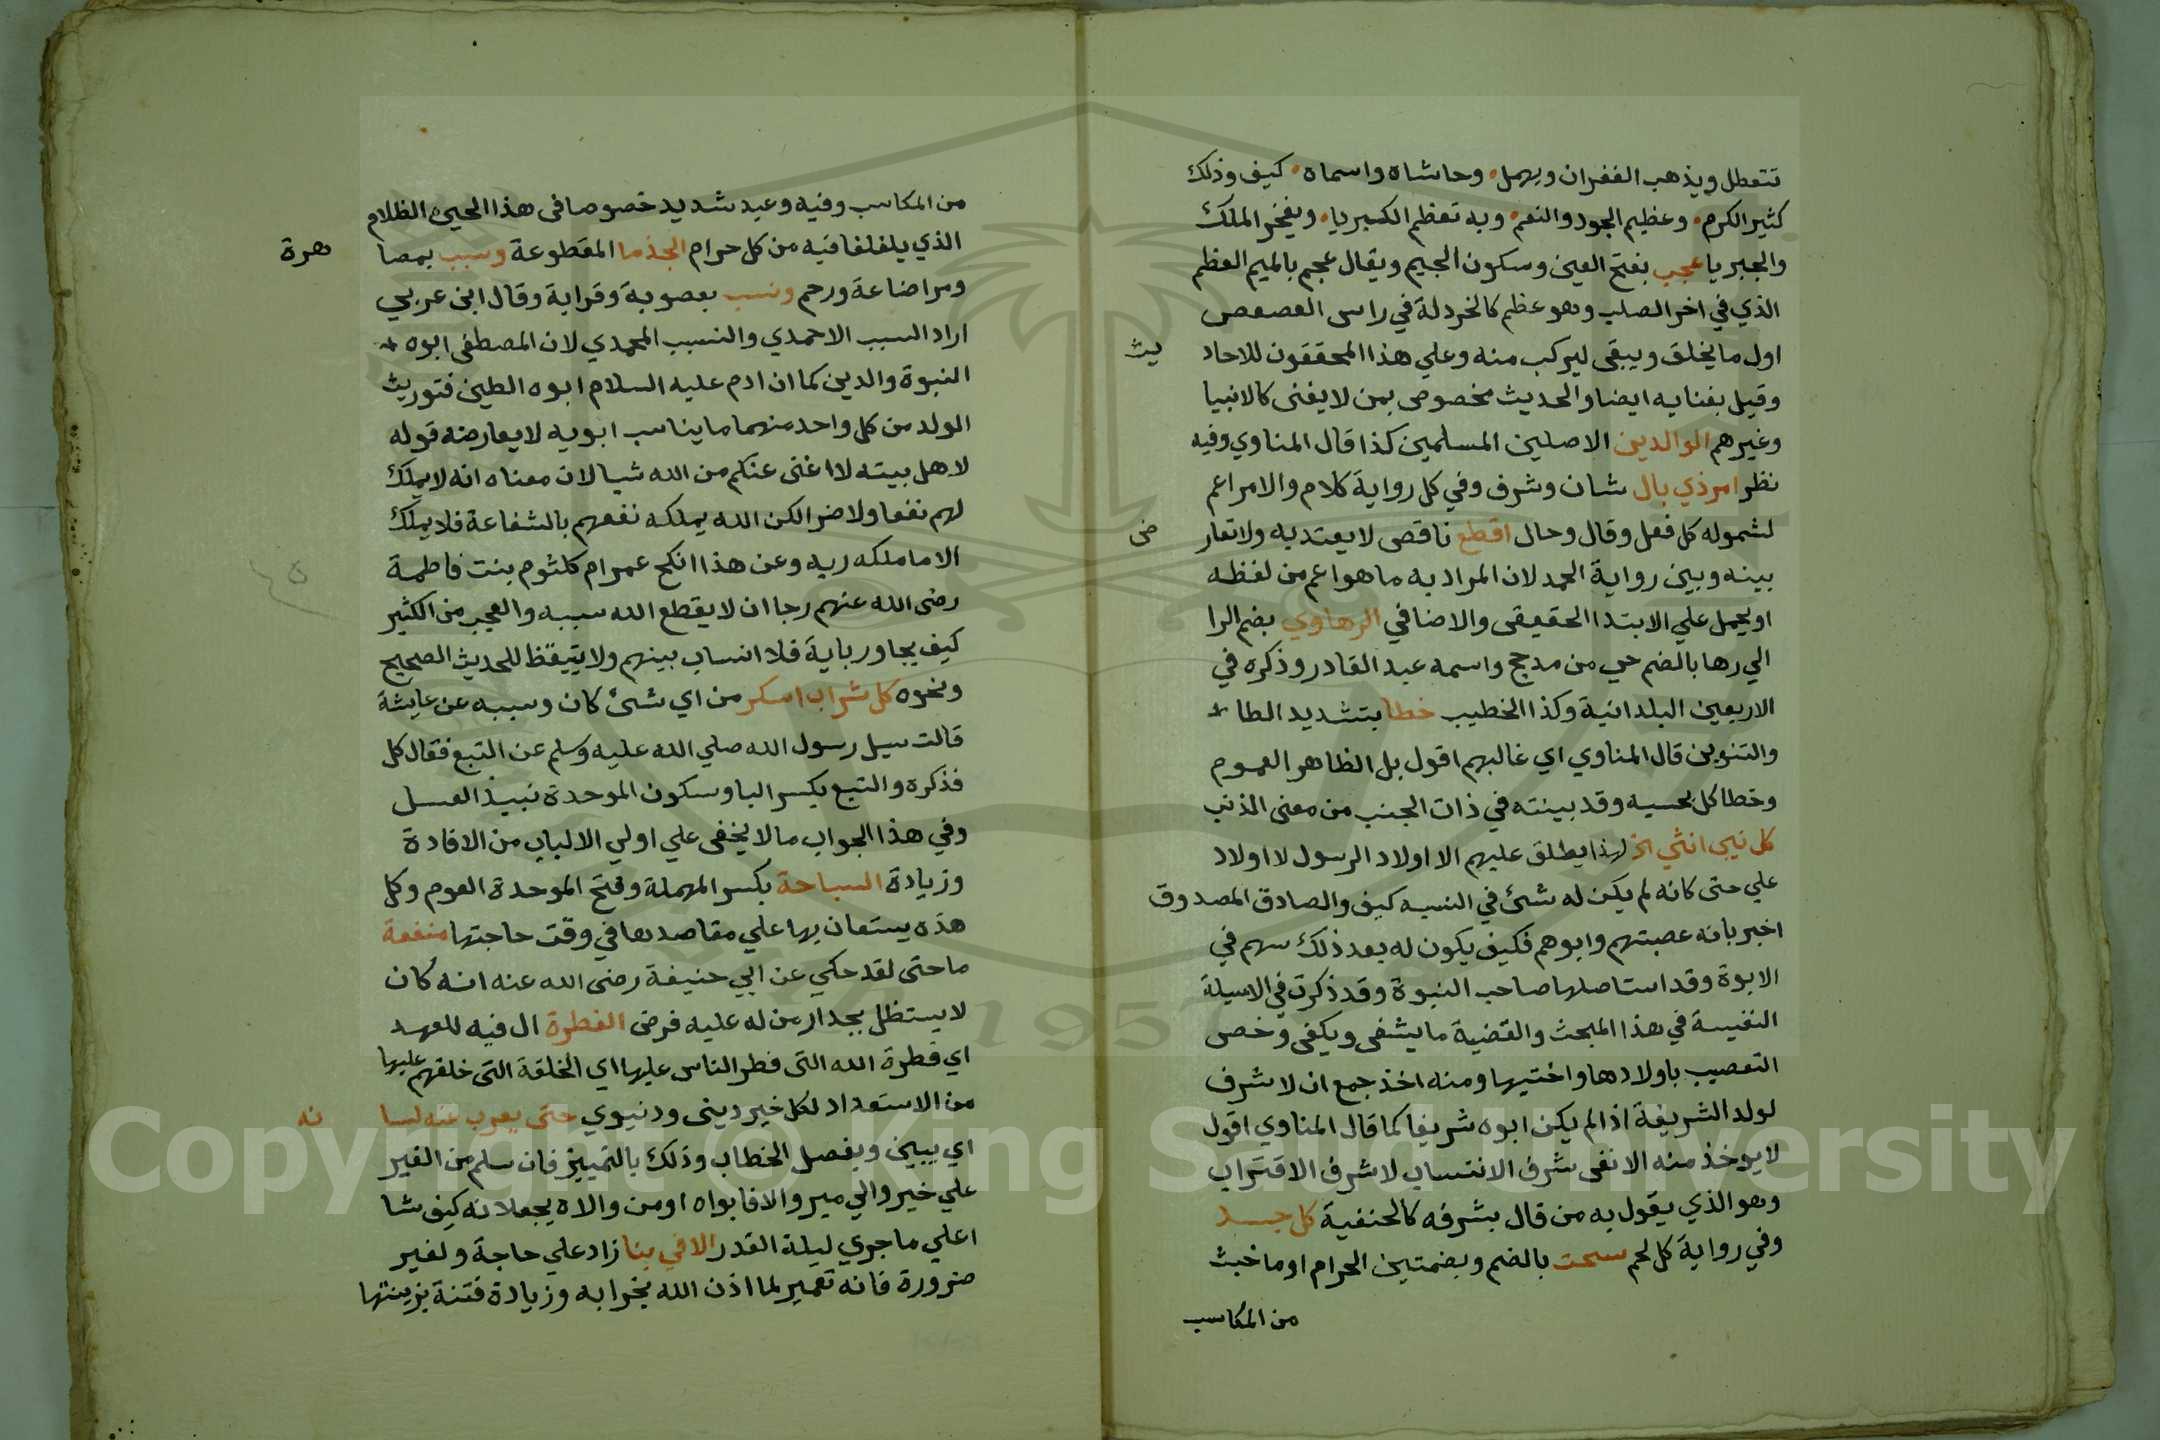 تتعطل ويذهب الغفران ويهمل وحاشاه واسماه كيف وذلك
كثير الكرم وعظيم الجود والنعم وبه تعظم الكبريا ويفخر الملك
والجبريا عجب بفتح العين وسكون الجيم ويقال عجم بالميم العظم
الذي في اخر الصلب وهو عظم كالخردلة في راس العصعص
اول ما يخلق ويبقى ليركب منه وعلي هذا المحققون للاحاد
يث
وقيل بفنايه ايضا والحديث مخصوص بمن لا يفنى كالانبيا
وغيرهم الوالدين الاصلين المسلمين كذا قال المناوي وفيه
نظر امر ذي بال شان وشرف وفي كل رواية كلام والامر اعم
لشموله كل فعل وقال وحال اقطع ناقص لا يعتد به ولا تعار
ض
بينه وبين رواية الحمد لان المراد به ما هو اعم من لفظه
او يحمل علي الابتدا الحقيقي والاضافي الرهاوي بضم الرا
الي رها بالضم حي من مدحج واسمه عبد القادر وذكره في
الاربعين البلدانية وكذا الخطيب خطا بتشديد الطا
والتنوين قال المناوي اي غالبهم اقول بل الظاهر العموم
وخطا كل بحسبه وقد بينته في ذات الجنب من معنى الذنب
كل نبي انثي الخ لهذا يطلق عليهم الا اولاد الرسول لا اولاد
علي حتى كانه لم يكن له شئ في النسبه كيف والصادق المصدوق
اخبر بانه عصبتهم وابوهم فكيف يكون له بعد ذلك سهم في
الابوة وقد استاصلها صاحب النبوة وقد ذكرت في الاسيلة
النفيسة في هذا المبحث والقضية ما يشفى ويكفى وخص
التعصيب باولادها واختيها ومنه اخذ جمع ان لا شرف
لولد الشريفة اذا لم يكن ابوه شريفا كما قال المناوي اقول
لا يوخذ منه الا نفى شرف الانتساب لا شرف الاقتراب
وهو الذي يقول به من قال بشرفه كالحنفية كل جسد
وفي رواية كل لحم سحت بالضم وبضمتين الحرام او ما خبث
من المكاسب
من المكاسب وفيه وعيد شديد خصوصا في هذا الحين الظلام
الذي يلغلغا فيه من كل حرام الجذما المقطوعة وسبب بمصا
هرة
ومراضاعة ورحم ونسب بعصوبة وقرابة وقال ابن عربي
اراد السبب الاحمدي والنسب المحمدي لان المصطفى ابوه
النبوة والدين كما ان ادم عليه السلام ابوه الطين فتوريث
الولد من كل واحد منهما ما يناسب ابويه لا يعارضه قوله
لاهل بيته لا اغنى عنكم من الله شيا لان معناه انه لا يملك
لهم نفعا ولا ضرا لكن الله يملكه نفعهم بالشفاعة فلا يملك
الا ما ملكه ربه وعن هذا انكح عمر ام كلثوم بنت فاطمة
رضى الله عنهم رجا ان لا يقطع الله سببه والعجب من الكثير
كيف يجاور باية فلا انساب بينهم ولا يتيقظ للحديث الصحيح
ونحوه كل شراب اسكر من اي شئ كان وسببه عن عايشة
قالت سيل رسول الله صلي الله عليه وسلم عن التبع فقال كل
فذكره والتبع بكسر البا وسكون الموحدة نبيذ العسل
وفي هذا الجواب ما لا يخفى علي اولي الالباب من الافادة
وزيادة السباحة بكسر المهملة وفتح الموحدة العوم وكل
هذه يستعان بها علي مقاصدها في وقت حاجتها منفعة
ما حتى لقد حكي عن ابي حنيفة رضى الله عنه انه كان
لا يستظل بجدار من له عليه فرض الفطرة ال فيه للعهد
اي فطرة الله التى فطر الناس عليها اي الخلقة التى خلقهم عليها
من الاستعداد لكل خير دينى ودنيوي حتى يعرب عنه لسا
نه
اي يبين ويفصل الخطاب وذلك بالتمييز فان سلم من الغير
علي خير والي مير والا فابواه او من والاه يجعلانه كيف شا
اعلي ما جري ليلة القدر الا في بنا زاد علي حاجة ولغير
ضرورة فانه تعمير لما اذن الله بخرابه وزيادة فتنة بزينتها
1957
Copyright © King Saud University